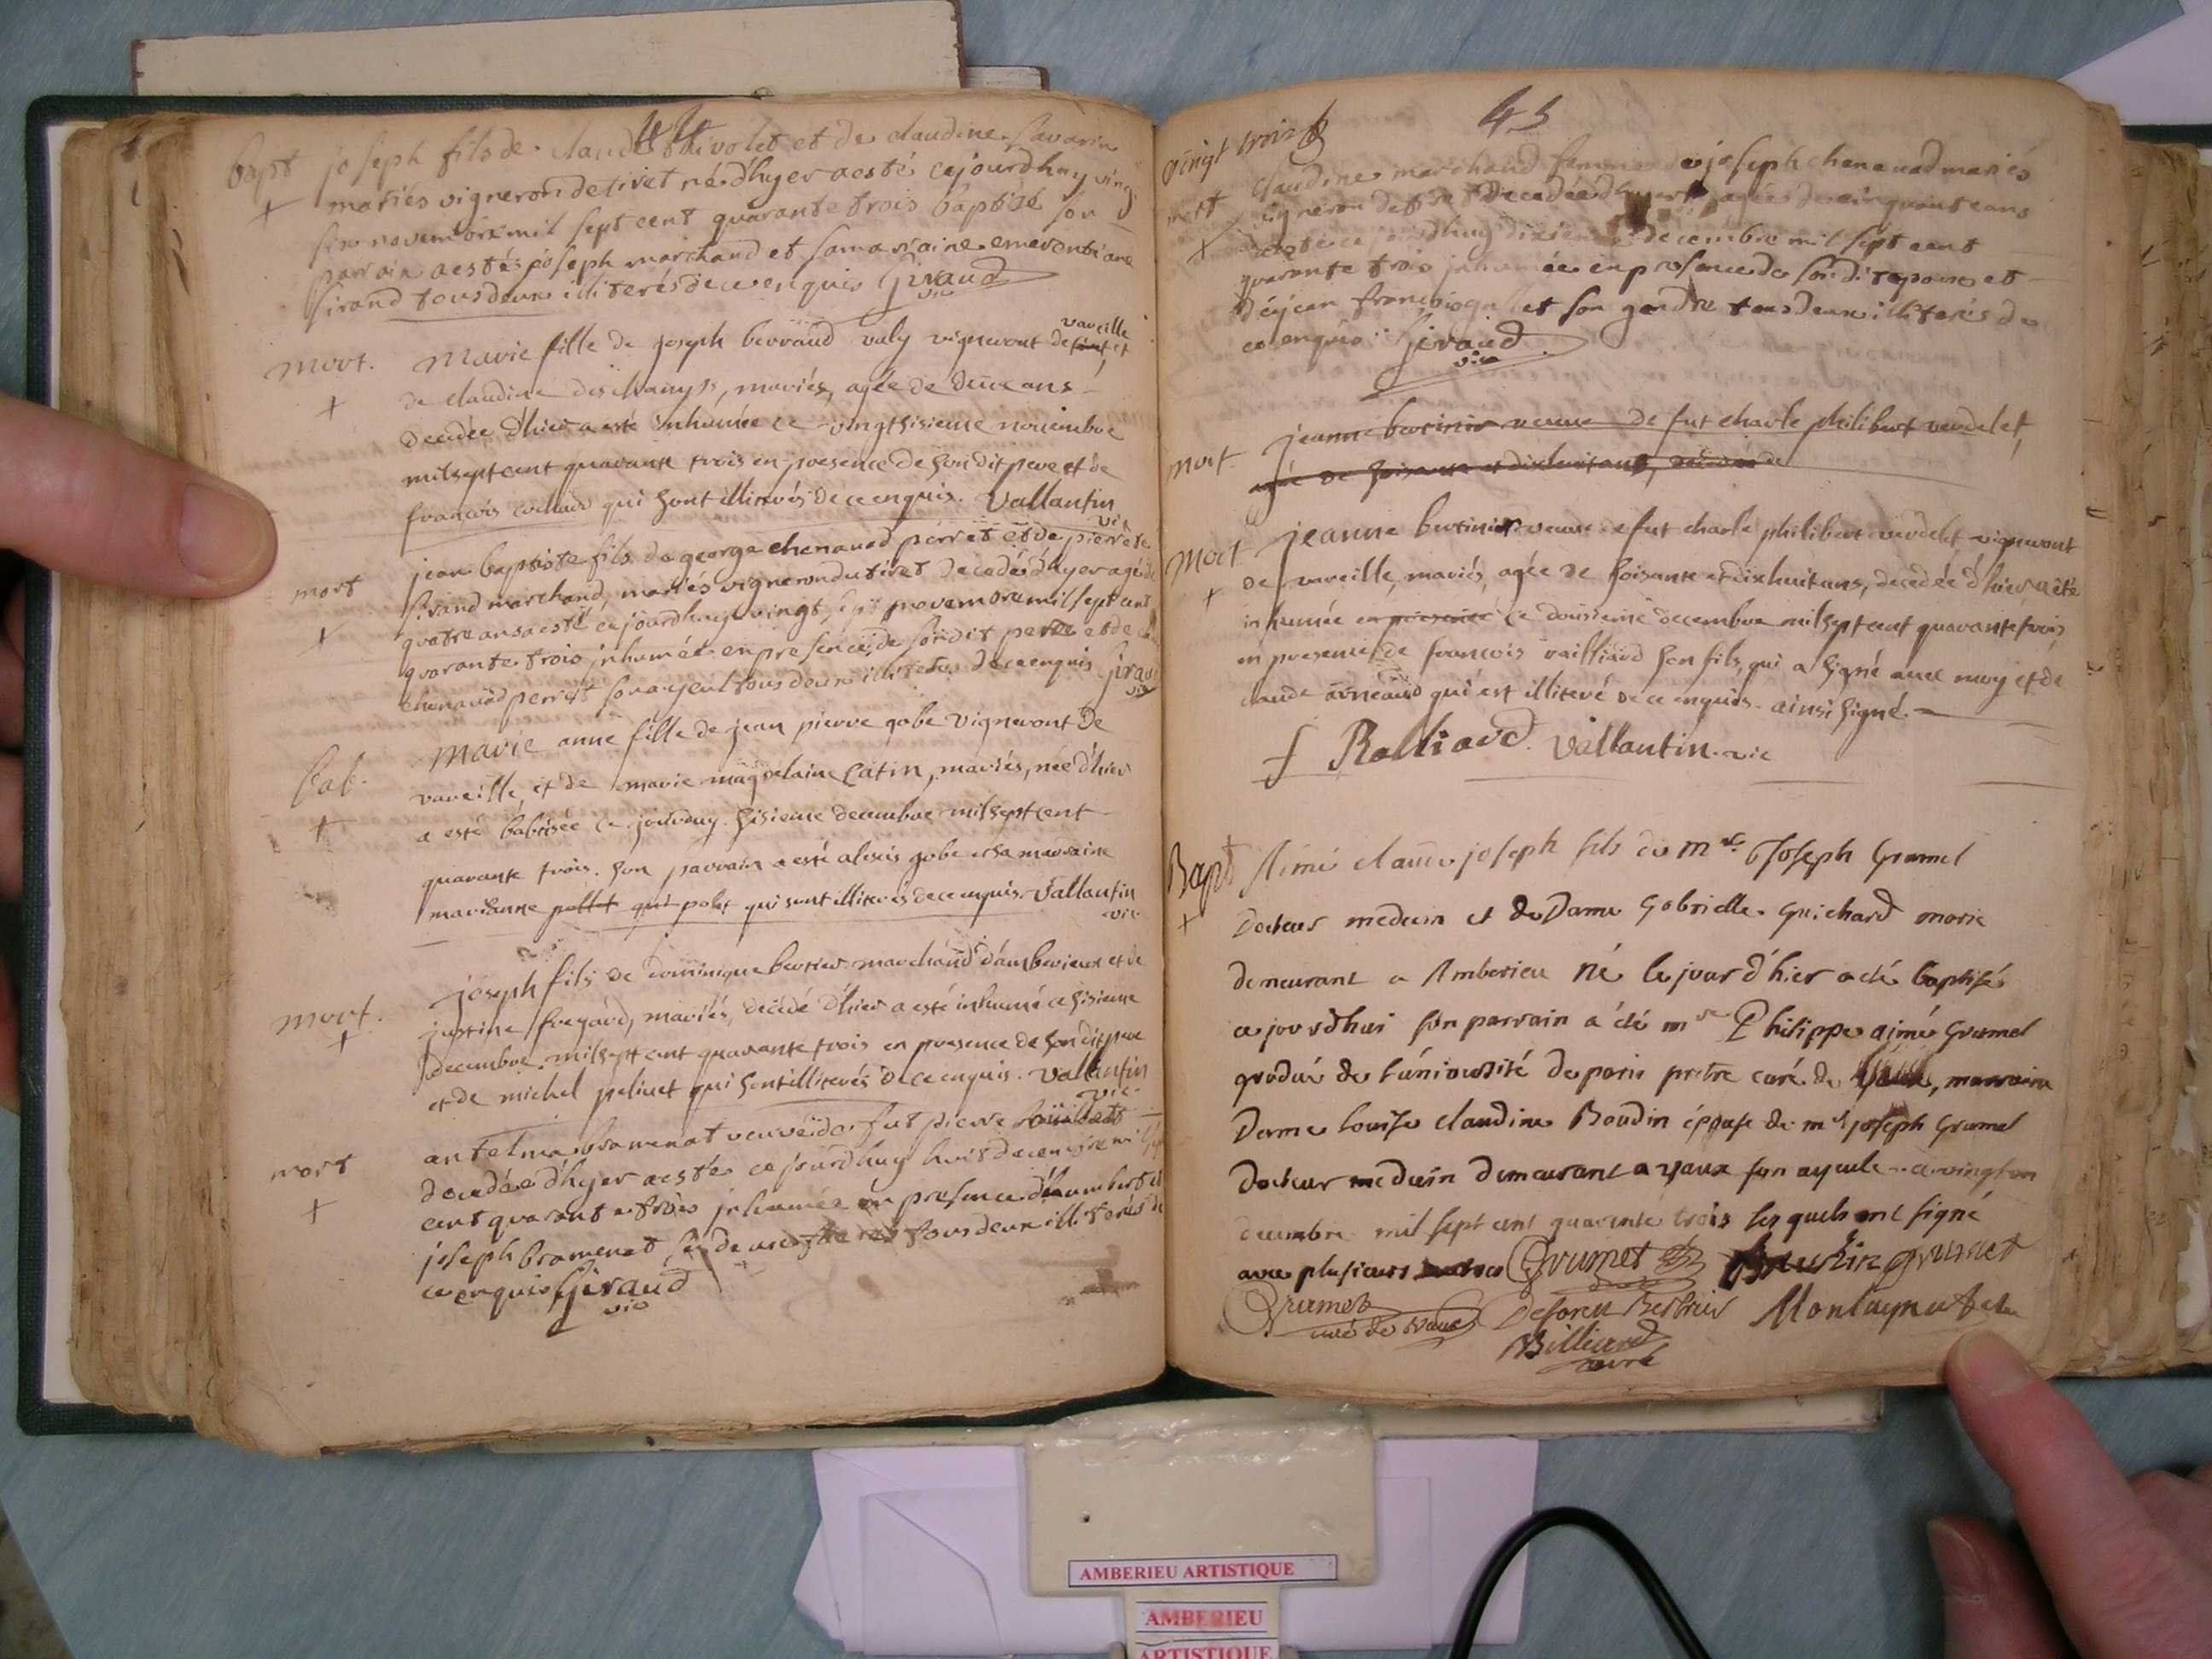 bapt joseph fils de claude tivolet et de claudine Savarin
+ mariés vigneron de tiret né d'hyer a esté cejourdhuy vingt
six novembre mil sept cent quarante trois baptisé son
parrain a estés joseph marchand et sa maraine emerentiane
sirand tous deux illiterés de ce enquis Giraud
vic
mort. Marie fille de joseph berraud valy vigneront de vareille et
+ de claudine deschamps, mariés, agée de deux ans
decedée d'hier a esté inhumée ce vingtsisieme novembre
milseptcent quarante trois en presence de son dit pere et de
francois cochard qui sont illiterés de ce enquis. Vallantin
vic
mort jean baptiste fils de george chenavad perret et de pierrete
+ sirand marchand, mariés vigneron du tiret decedé d'hyer agé de
quatre ans a esté ce jourdhuy vingt sept novembre mil sept cent
quarante trois inhumée en presence de son dit pere et de
chenavad perret son ayeul tous deux illiterés de ce enquis Giraud
vic
bab. Marie anne fille de jean pierre gobe vigneront de
vareille, et de marie magdelaine Catin, mariés, née d'hier
+ a esté babtisée ce jourduy sisieme decembre milseptcent
quarante trois. son parrain a esté alexis gobe et sa marraine
marianne pollet qui polet qui sont illiterés de ce enquis. Vallantin
vic
mort. joseph fils de dominique bertier marchand d'amberieux et de
+ justine fregard, mariés, decedé d'hier a esté inhumé ce sisieme
decembre milsept cent quarante trois en presence de son dit pere
et de michel pelivet qui sont illiterés de ce enquis. Vallantin
vic
mort antelma bramenat veuve de fut pierre
+ decedée d'hyer a esté ce jourdhuy huit decembre mil sept
cent quarante trois inhumée en presence d'humbert et
joseph bramenat tous deux illiterés de
ce enquis Giraud
vic
43
vingt trois
mort claudine marchand femme de joseph chenavad mariés
+ vigneron de tiret decedée d'hyert agées de cinquante ans
a esté ce jourdhuy dixieme decembre mil sept cent
quarante trois inhumée en presence de son dit epoux et
de jean francois gullet son gendre tous deux illiterés de
ce enquis Giraud
vic
mort jeanne bertinier veuve de fut charle philibert verdelet,
agée de soisante et dixhuitans, decedée de
mort jeanne bertinier veuve de fut charle philibert verdelet vigneront
+ de vareille, mariés, agée de soisante et dixhuitans, decedée d'hier a été
inhumée en presence ce dousieme decembre milseptcent quarante trois,
en presence de francois railliard son fils, qui a signé avec moy et de
claude arneaud qui est illiteré de ce enquis. ainsi signé.
f Ralliard. Vallantin. vic
Bapt Aimé claude joseph fils de mre Joseph Grumel
+ Docteur medecin et de Dame Gabrielle Guichard marie
demeurant a Amberieu né le jour d'hier a été baptisé
ce jourdhui son parrain a été mre Philippe aimé Grumel
gradué de l'université de paris pretre curé de Vaux, marraine
Dame louise claudine Boudin épouse de mre joseph Grumel
docteur medecin demeurant a vaux son ayeule ce vingt un
decembre mil sept cent quarante trois lesquels ont signé
avec plusieurs autres Grumet Grumet
Grumet
curé de Vaux
Billiard
curé
AMBERIEU ARTISTIQUE
AMBERIEU
ARTISTIQUE